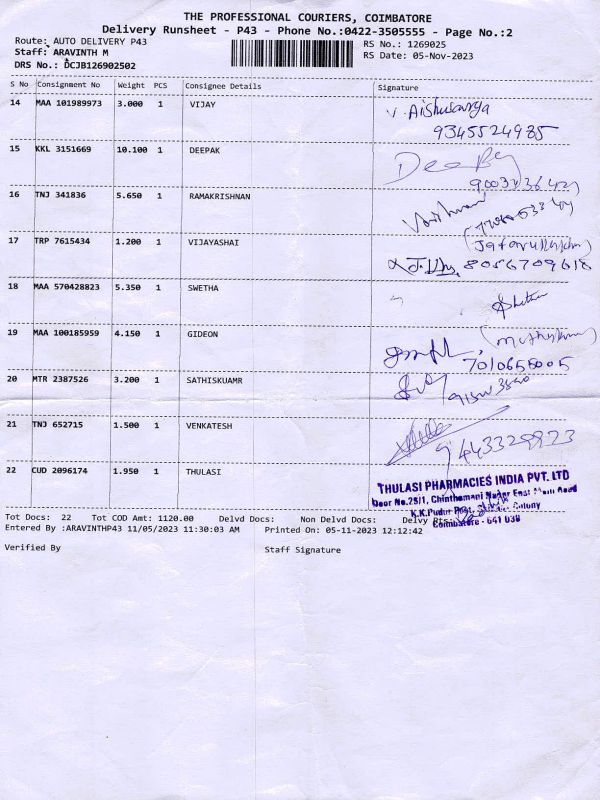 THE PROFESSIONAL COURIERS, COIMBATORE
Delivery Runsheet - P43 - Phone No.:0422-3505555 - Page No.:2
Route: AUTO DELIVERY P43
RS No.: 1269025
Staff: ARAVINTH M
RS Date: 05-Nov-2023
DRS No.: DCJB126902502
S No Consignment No Weight PCS Consignee Details Signature
14 MAA 101989973 3.000 1 VIJAY
V. Aishwarya
9345524985
15 KKL 3151669 10.100 1 DEEPAK
Deepak
16 TNJ 341836 5.650 1 RAMAKRISHNAN
17 TRP 7615434 1.200 1 VIJAYASHAI
8056709618
18 MAA 570428823 5.350 1 SWETHA
19 MAA 100185959 4.150 1 GIDEON
7010655005
20 MTR 2387526 3.200 1 SATHISKUAMR
21 TNJ 652715 1.500 1 VENKATESH
9443329823
22 CUD 2096174 1.950 1 THULASI
THULASI PHARMACIES INDIA PVT. LTD
Door No.25/1, Chinthamani Nagar East Main Road
K.K.Pudur Post, Colony
Coimbatore - 641 038
Tot Docs: 22 Tot COD Amt: 1120.00 Delvd Docs: Non Delvd Docs: Delvy Rts:
Entered By :ARAVINTHP43 11/05/2023 11:30:03 AM Printed On: 05-11-2023 12:12:42
Verified By Staff Signature